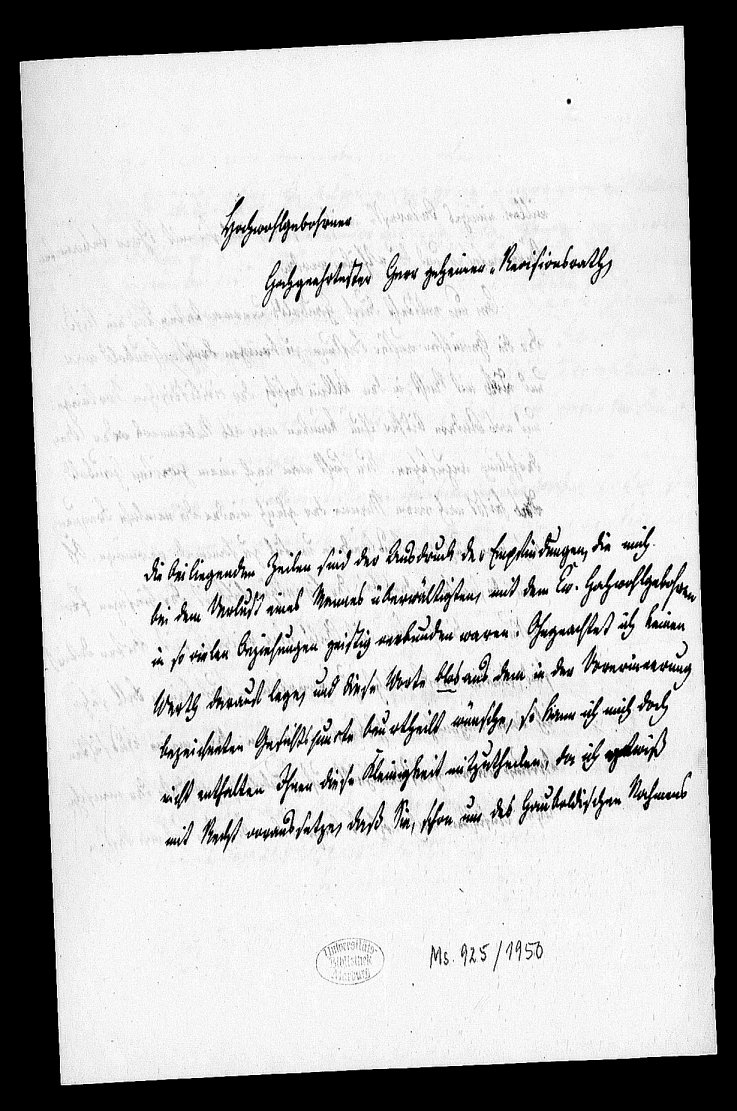 Hochwohlgebohrner
Hochgeehrtester Herr geheimer Revisionsrath,
die beiliegenden Zeilen sind der Ausdruck der Empfindungen, die mich
bei dem Verlust eines Mannes überwältigten, mit dem Ew. Hochwohlgebohren
in so vielen Beziehungen geistig verbunden waren. Ohgeachtet ich keinen
Werth darauf lege, und diese Worte blos aus dem in der Vorerinnerung
bezeichneten Gesichtspunkte beurtheilt wünsche, so kann ich mich doch
nicht enthalten Ihnen diese Kleinigkeit mitzutheilen, da ich gewiß
mit Recht voraussetze, daß Sie, schon um des Hauboldischen Nahmens
Universitäts-
Bibliothek
Marburg
Ms. 925/1950